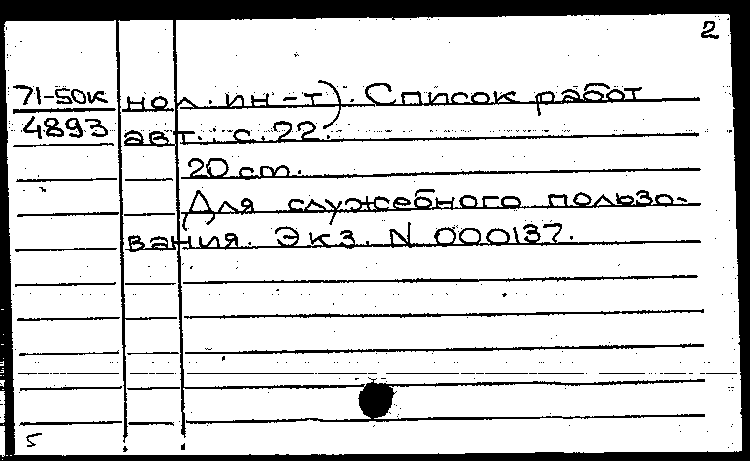 2
71-50к нол. ин-т). Список работ
4893 авт.: с. 22.
20 cm.
Для служебного пользо-
вания. Экз. N 000137.
5